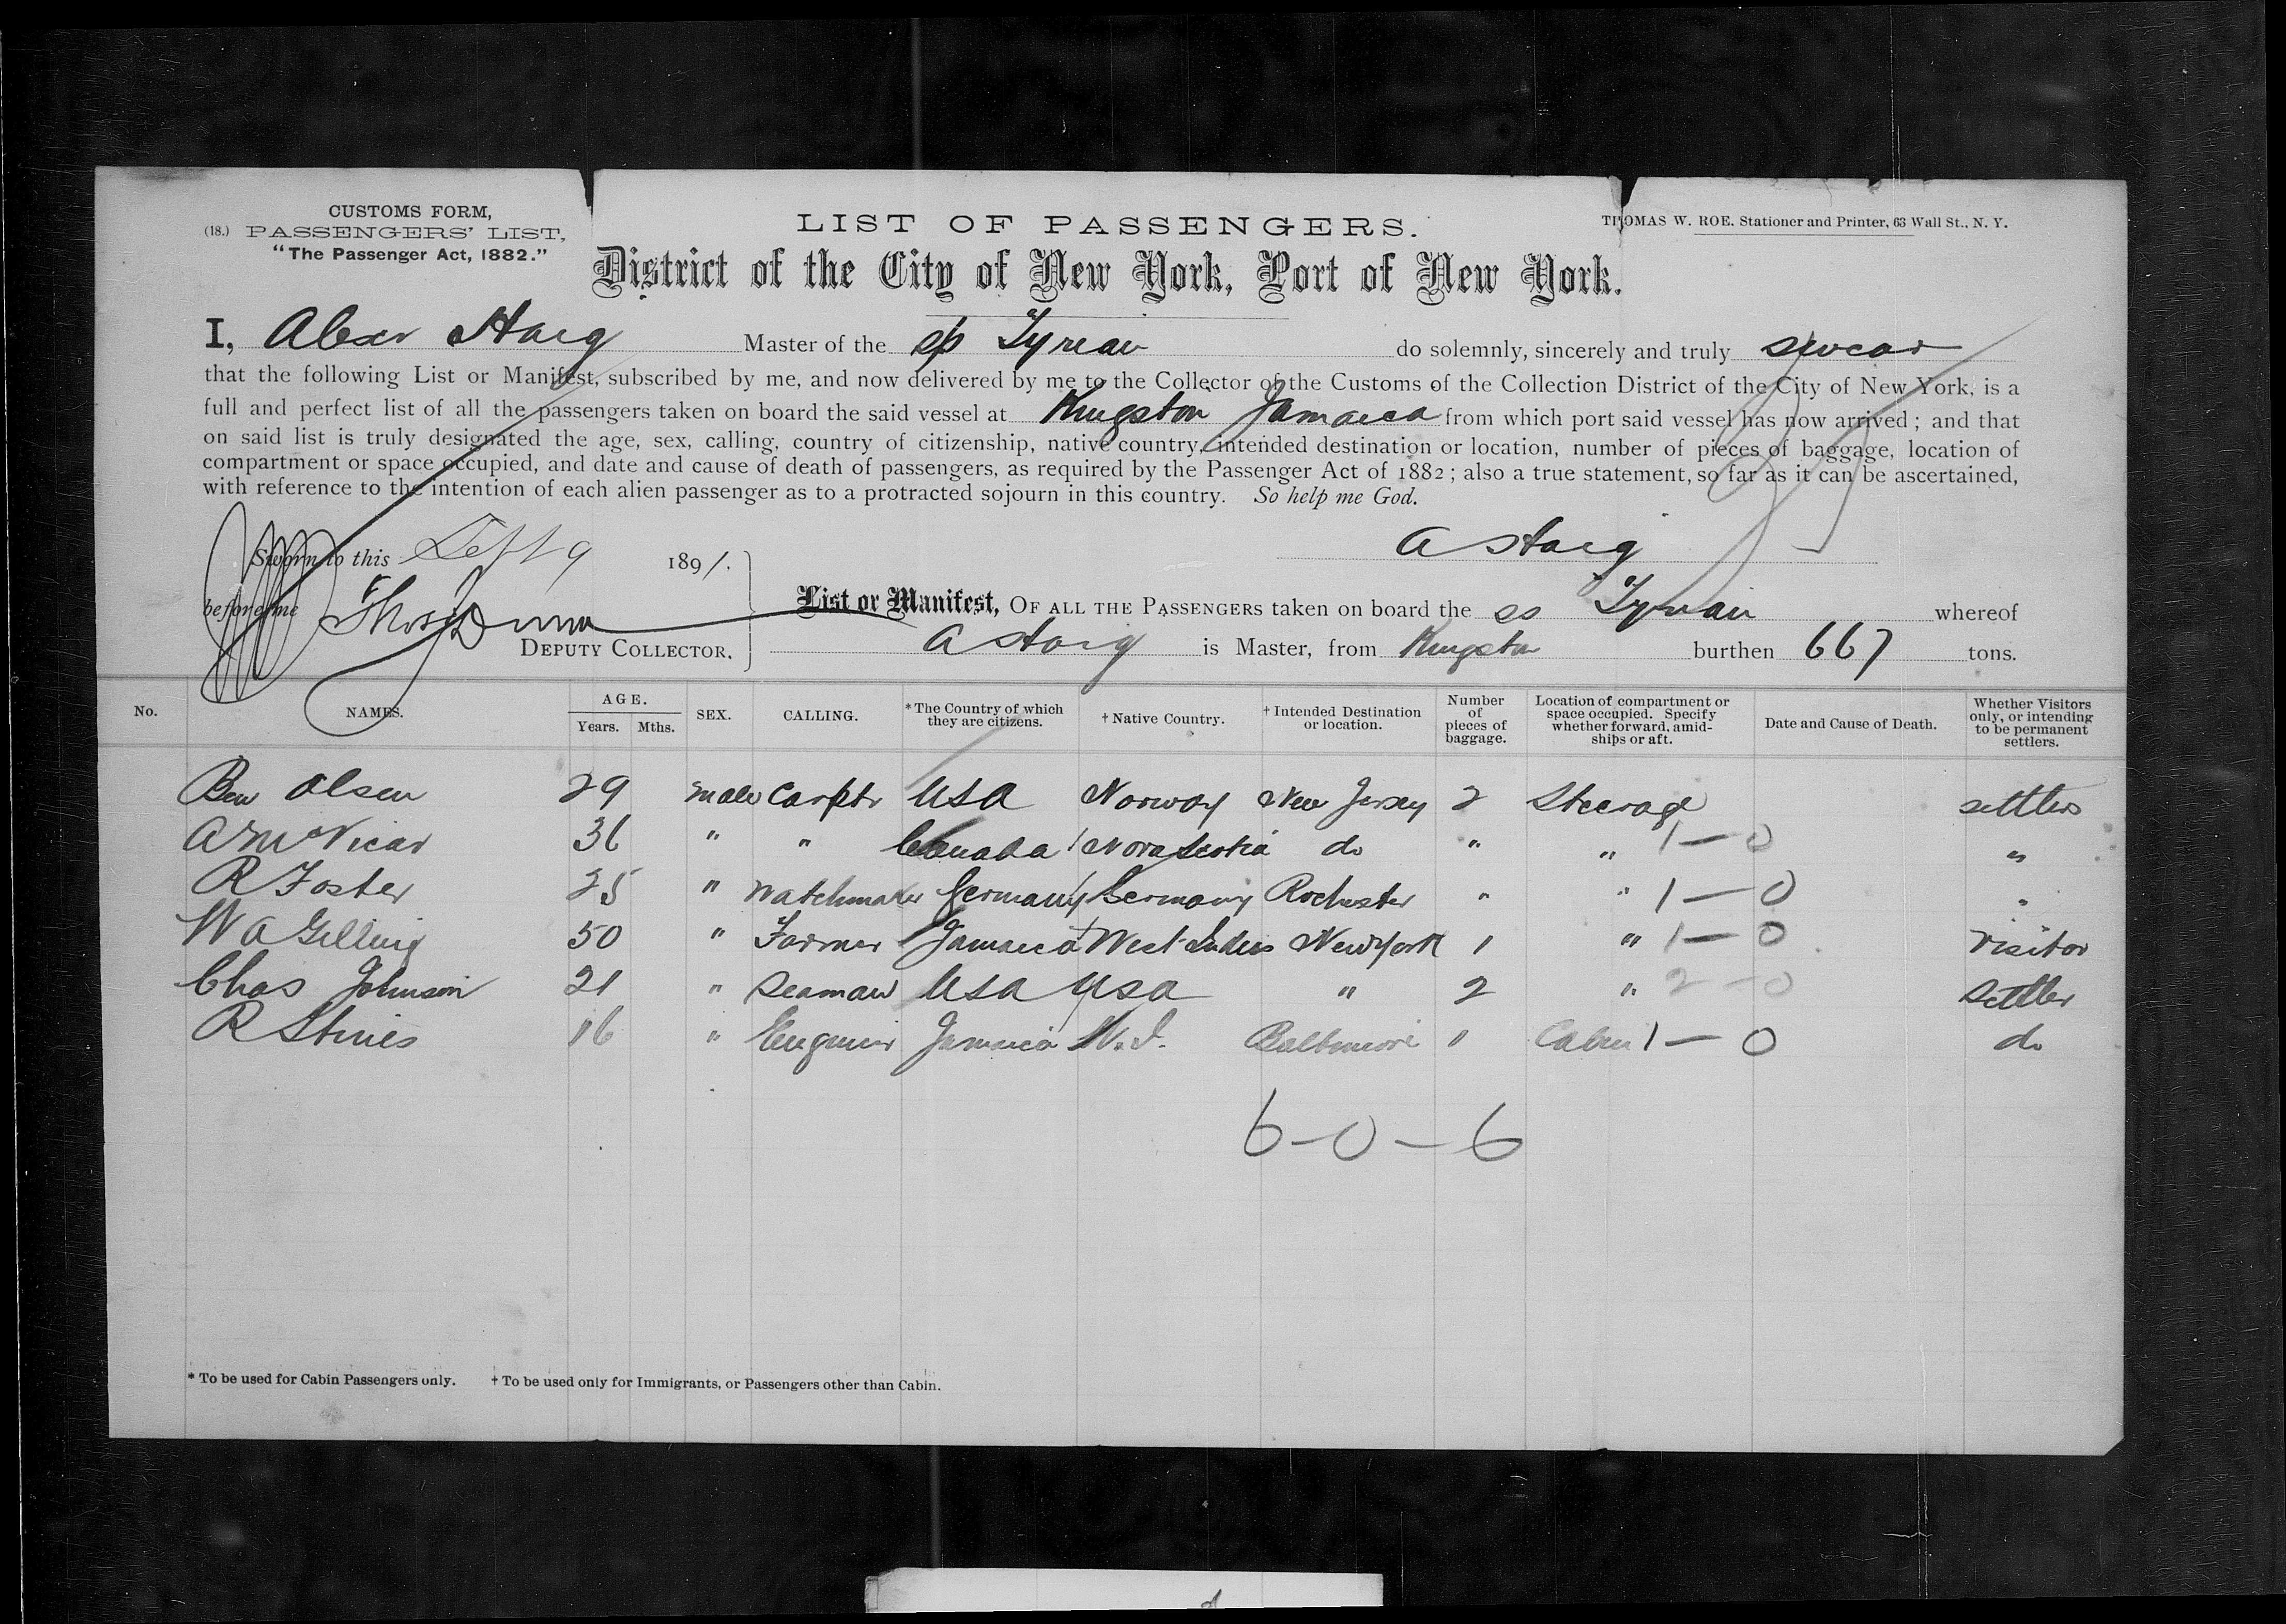 CUSTOMS FORM,
(18.) PASSENGERS' LIST,
"The Passenger Act, 1882."
LIST OF PASSENGERS.
THOMAS W. ROE. Stationer and Printer, 63 Wall St., N. Y.
District of the City of New York, Port of New York.
I, Alexr Haig Master of the SS Tyrian do solemnly, sincerely and truly swear
that the following List or Manifest, subscribed by me, and now delivered by me to the Collector of the Customs of the Collection District of the City of New York, is a
full and perfect list of all the passengers taken on board the said vessel at Kingston Jamaica from which port said vessel has now arrived; and that
on said list is truly designated the age, sex, calling, country of citizenship, native country, intended destination or location, number of pieces of baggage, location of
compartment or space occupied, and date and cause of death of passengers, as required by the Passenger Act of 1882; also a true statement, so far as it can be ascertained,
with reference to the intention of each alien passenger as to a protracted sojourn in this country. So help me God.
A Haig
Sworn to this Sept 9 1891.
before me Thos Dunn
DEPUTY COLLECTOR.
List or Manifest, OF ALL THE PASSENGERS taken on board the SS Tyrian whereof
A Haig is Master, from Kingston burthen 667 tons.
No. NAMES. AGE. Years. Mths. SEX. CALLING. * The Country of which they are citizens. † Native Country. † Intended Destination or location. Number of pieces of baggage. Location of compartment or space occupied. Specify whether forward, amidships or aft. Date and Cause of Death. Whether Visitors only, or intending to be permanent settlers.
Ben Olsen 29 male Carptr USA Norway New Jersey 2 Steerage settlers
A McVicar 36 " " Canada Nova Scotia do " " 1-0 "
R Foster 25 " Watchmaker Germany Germany Rochester " " 1-0 "
W A Gilling 50 " Farmer Jamaica West Indies New York 1 " 1-0 visitor
Chas Johnson 21 " Seaman USA USA " 2 " 2-0 settler
R Stines 16 " Engineer Jamaica W.I. Baltimore " Cabin 1-0 do
6-0-6
* To be used for Cabin Passengers only. † To be used only for Immigrants, or Passengers other than Cabin.